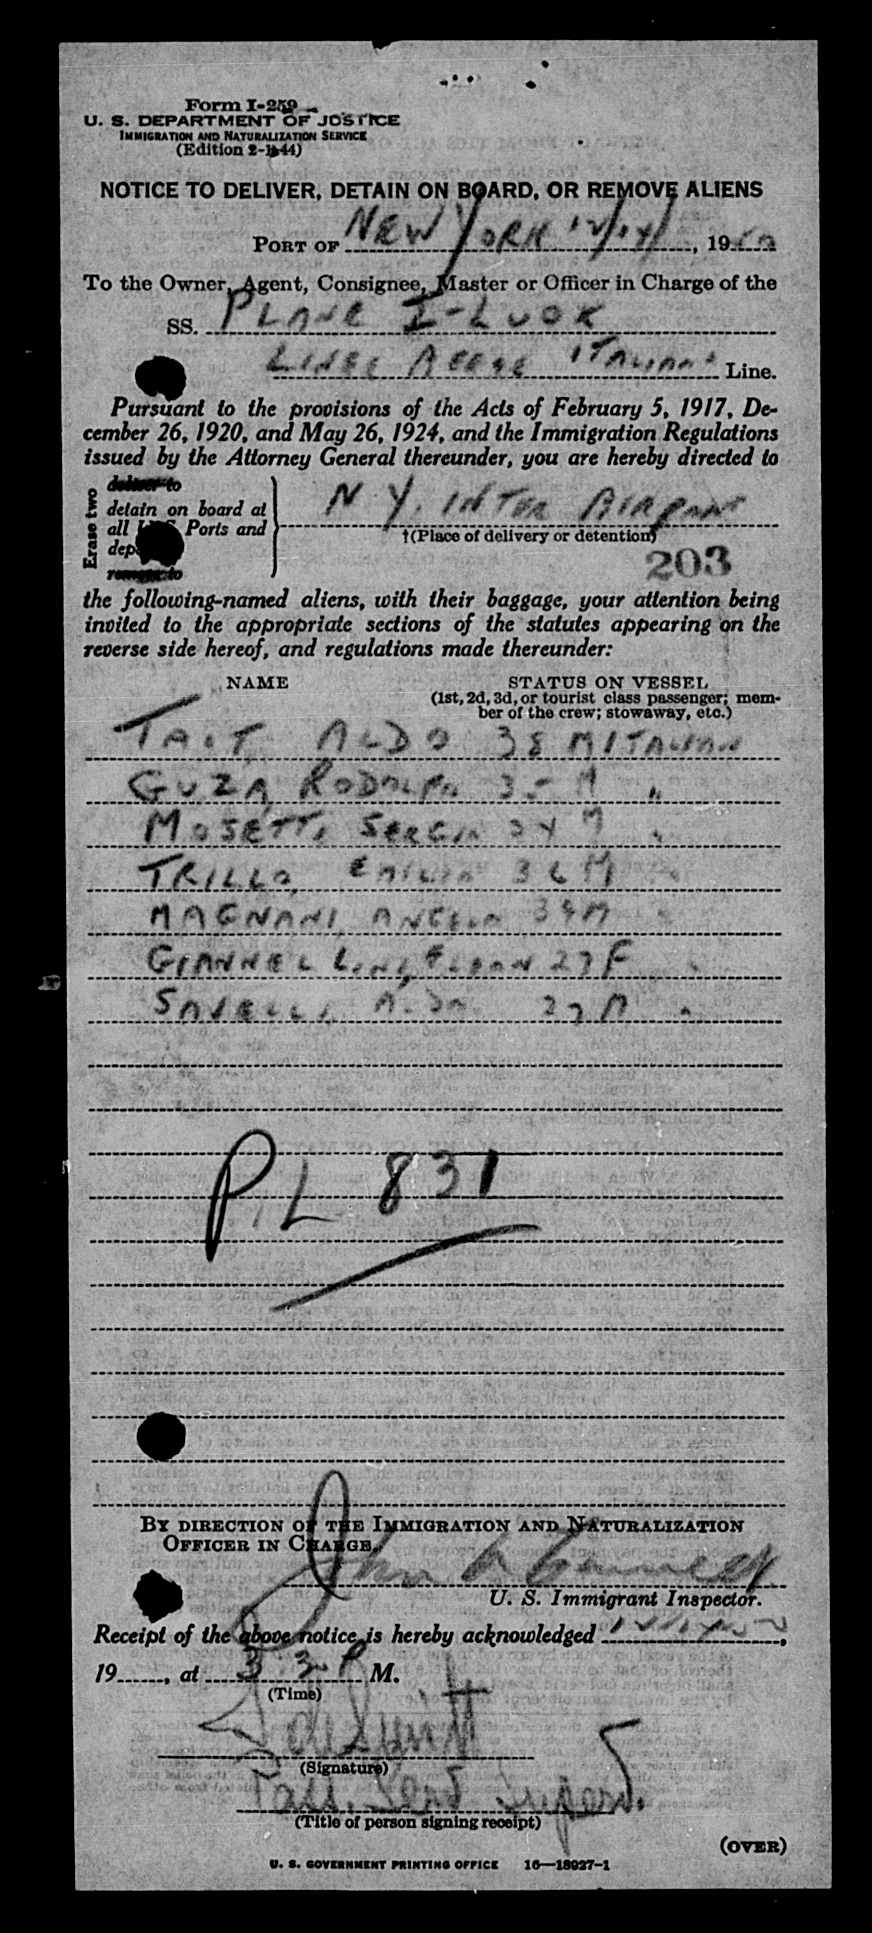 Form I-259
U. S. DEPARTMENT OF JUSTICE
IMMIGRATION AND NATURALIZATION SERVICE
(Edition 2-1-44)
NOTICE TO DELIVER, DETAIN ON BOARD, OR REMOVE ALIENS
PORT OF NEW YORK 12/14/, 19
To the Owner, Agent, Consignee, Master or Officer in Charge of the
SS. PLANE I-LUOK
LINEE AEREE ITALIANE Line.
Pursuant to the provisions of the Acts of February 5, 1917, De-
cember 26, 1920, and May 26, 1924, and the Immigration Regulations
issued by the Attorney General thereunder, you are hereby directed to
Erase two
deliver to
detain on board at
all U.S. Ports and
remove to
N Y. INTER AIRPORT
†(Place of delivery or detention)
203
the following-named aliens, with their baggage, your attention being
invited to the appropriate sections of the statutes appearing on the
reverse side hereof, and regulations made thereunder:
NAME STATUS ON VESSEL
(1st, 2d, 3d, or tourist class passenger; mem-
ber of the crew; stowaway, etc.)
ALDO 38 M ITALIAN
GUZA, RODOLFO 35 M "
MOSETTI, SERGIO 34 M "
TRILLO, EMILIO 36 M "
MAGNANI, ANGELO M "
27 F "
SAVELLI, ALDO 27 M "
P.L 831
BY DIRECTION OF THE IMMIGRATION AND NATURALIZATION
OFFICER IN CHARGE.
John
U. S. Immigrant Inspector.
Receipt of the above notice is hereby acknowledged ,
19 , at 3.30 P M.
(Time)
(Signature)
Pass.
(Title of person signing receipt)
(OVER)
U. S. GOVERNMENT PRINTING OFFICE 16—18927-1